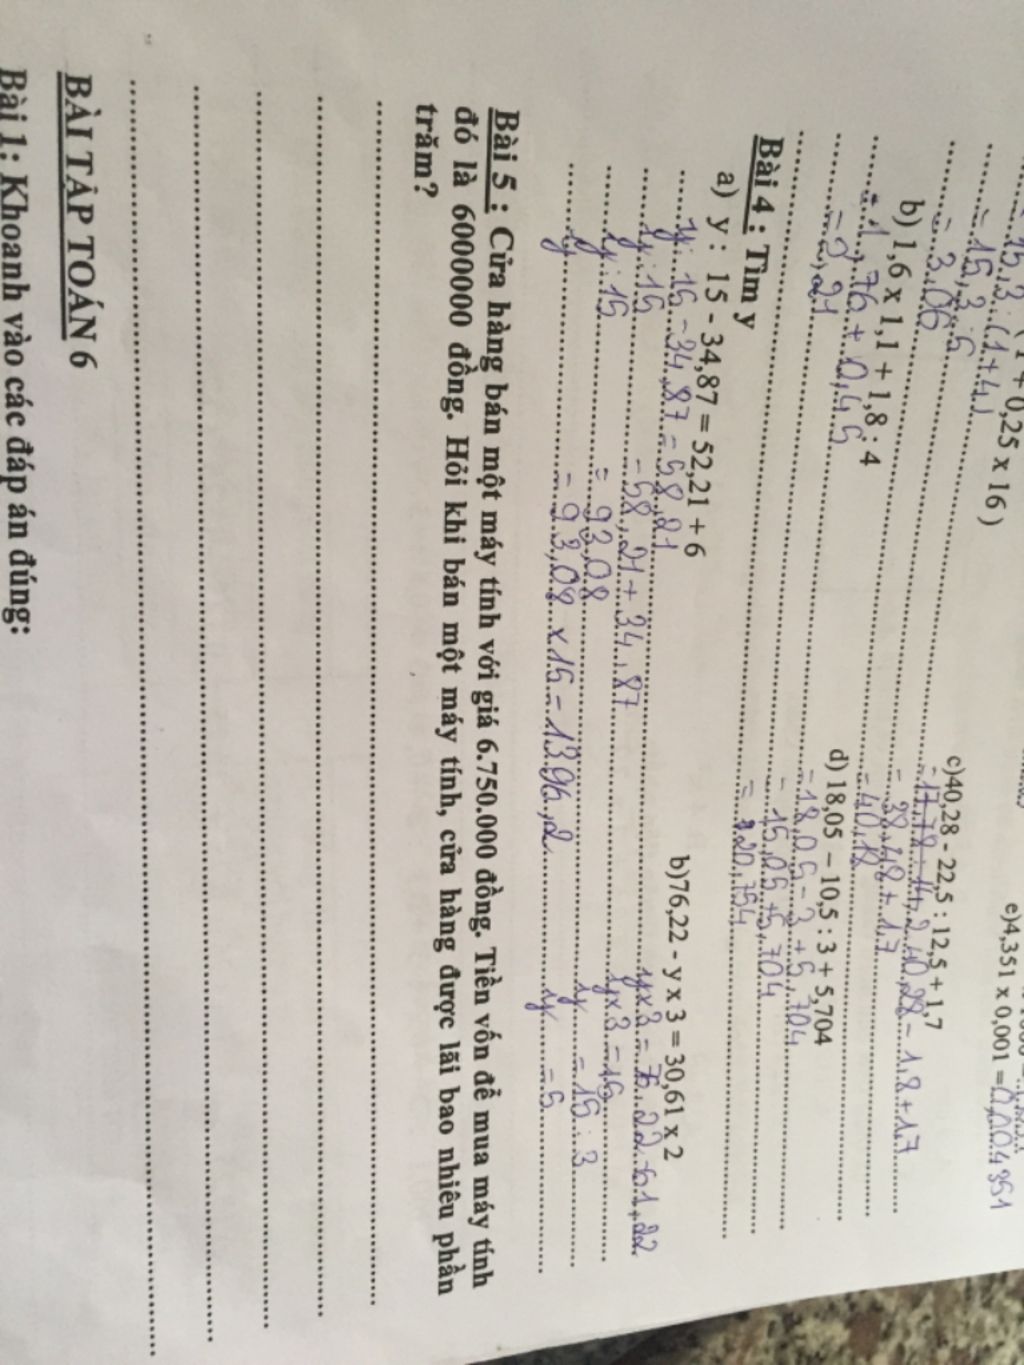 = 15,3 : (1 + 0,25 x 16)
= 15,3 : (1+4)
= 15,3 : 5
= 3,06
b) 1,6 x 1,1 + 1,8 : 4
= 1,76 + 0,45
= 2,21
e)4,351 x 0,001 = 0,004351
c)40,28 - 22,5 : 12,5 + 1,7
40,28 - 1,8 + 1,7
= 38,48 + 1,7
= 40,18
d) 18,05 – 10,5 : 3 + 5,704
= 18,05 - 3 + 5,704
= 15,05 + 5,704
= 20,754
Bài 4 : Tìm y
a) y : 15 - 34,87 = 52,21 + 6
y : 15 - 34,87 = 58,21
y : 15 = 58,21 + 34,87
y : 15 = 93,08
y = 93,08 x 15 = 1396,2
b)76,22 - y x 3 = 30,61 x 2
y x 3 = 76,22 - 61,22
y x 3 = 15
y = 15 : 3
y = 5
Bài 5 : Cửa hàng bán một máy tính với giá 6.750.000 đồng. Tiền vốn để mua máy tính
đó là 6000000 đồng. Hỏi khi bán một máy tính, cửa hàng được lãi bao nhiêu phần
trăm?
BÀI TẬP TOÁN 6
Bài 1: Khoanh vào các đáp án đúng: